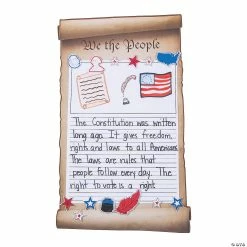 We the People
The Constitution was written
long ago. It gives freedom,
rights and laws to all Americans.
The laws are rules that
people follow every day. The
right to vote is a right